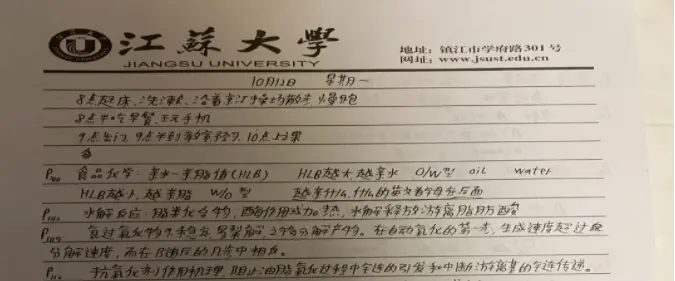 江苏大学
JIANGSU UNIVERSITY
地址：镇江市学府路301号
网址：www.jsust.edu.cn
10月12日 星期一
8点起床、洗漱、沿着京江操场散步、慢跑
8点半吃早餐、玩手机
9点出门，9点半到教室预习，10点上课
P 食品化学：亲水—亲脂值(HLB) HLB越大，越亲水 O/W型 oil water
HLB越小，越亲脂 W/O型 越亲什么，什么的英文首字母在后面
P 水解反应：脂类化合物，酶作用或加热，水解释放游离脂肪酸
P105 氢过氧化物不稳定，易裂解，分解产物。在自动氧化的第一步，生成速度超过
分解速度，而在 反应的几步中相反。
P 抗氧化剂作用机理，阻止油脂氧化过程中全连的引发和中断游离基的全连传递。